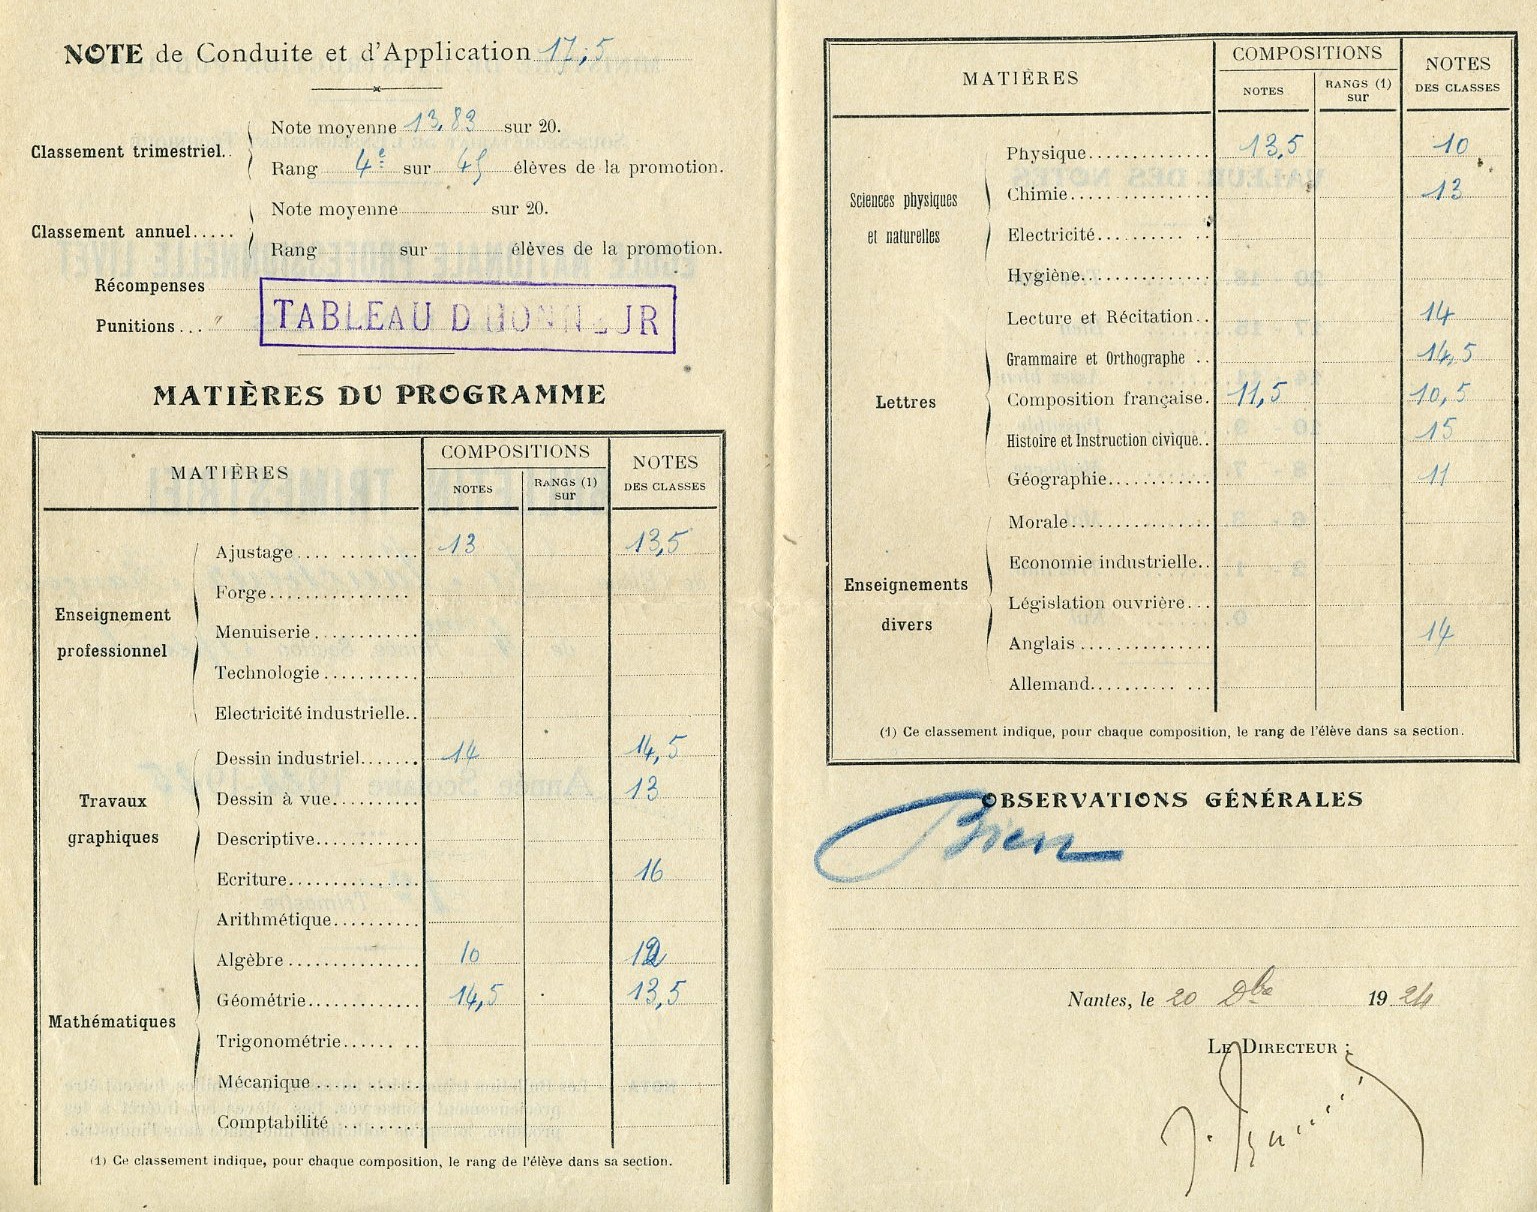 NOTE de Conduite et d'Application 17,5
Classement trimestriel..
Note moyenne 13,83 sur 20.
Rang 4e sur 45 élèves de la promotion.
Classement annuel.....
Note moyenne sur 20.
Rang sur élèves de la promotion.
Récompenses
Punitions ...
TABLEAU D'HONNEUR
MATIÈRES DU PROGRAMME
MATIÈRES COMPOSITIONS NOTES DES CLASSES
NOTES RANGS (1) sur
Enseignement professionnel
Ajustage 13 13,5
Forge
Menuiserie
Technologie
Electricité industrielle..
Travaux graphiques
Dessin industriel 14 14,5
Dessin à vue 13
Descriptive
Ecriture 16
Mathématiques
Arithmétique
Algèbre 10 12
Géométrie 14,5 13,5
Trigonométrie
Mécanique
Comptabilité
(1) Ce classement indique, pour chaque composition, le rang de l'élève dans sa section.
MATIÈRES COMPOSITIONS NOTES DES CLASSES
NOTES RANGS (1) sur
Sciences physiques et naturelles
Physique 13,5 10
Chimie 13
Electricité
Hygiène
Lettres
Lecture et Récitation.. 14
Grammaire et Orthographe .. 14,5
Composition française. 11,5 10,5
Histoire et Instruction civique.. 15
Géographie 11
Enseignements divers
Morale
Economie industrielle..
Législation ouvrière...
Anglais 14
Allemand
(1) Ce classement indique, pour chaque composition, le rang de l'élève dans sa section.
OBSERVATIONS GÉNÉRALES
Bien
Nantes, le 20 Dbre 1924
LE DIRECTEUR :